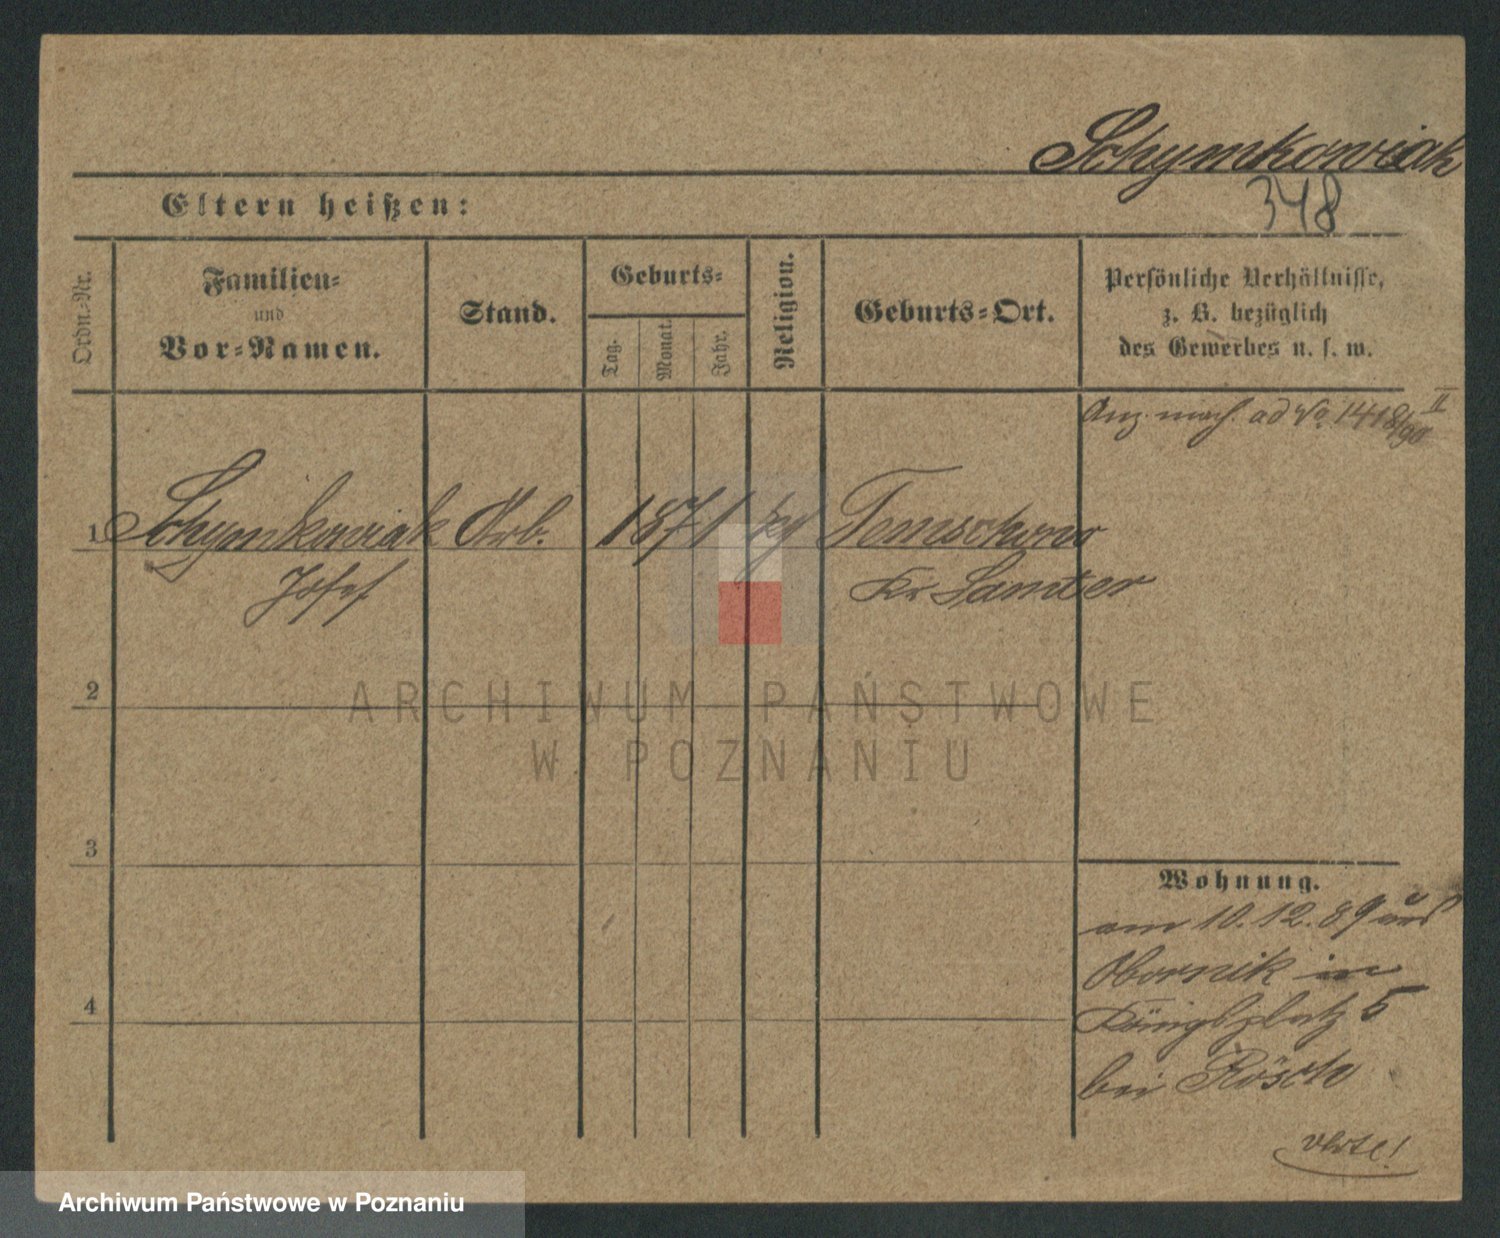 Schymkowiak
348
Eltern heißen:
Ordn.-Nr.
Familien-
und
Vor-Namen.
Stand.
Geburts-
Tag.
Monat.
Jahr.
Religion.
Geburts-Ort.
Persönliche Verhältnisse,
z. B. bezüglich
des Gewerbes u. s. w.
Anz. mach. ad No. 1418/90 II
1 Schymkowiak Arb. 1871 kg
Josef Kr Samter
2
ARCHIWUM PAŃSTWOWE
W POZNANIU
3
4
Wohnung.
am 10.12.89 aus
Obornik in
Königsplatz 5
bei Rösch
verte!
Archiwum Państwowe w Poznaniu